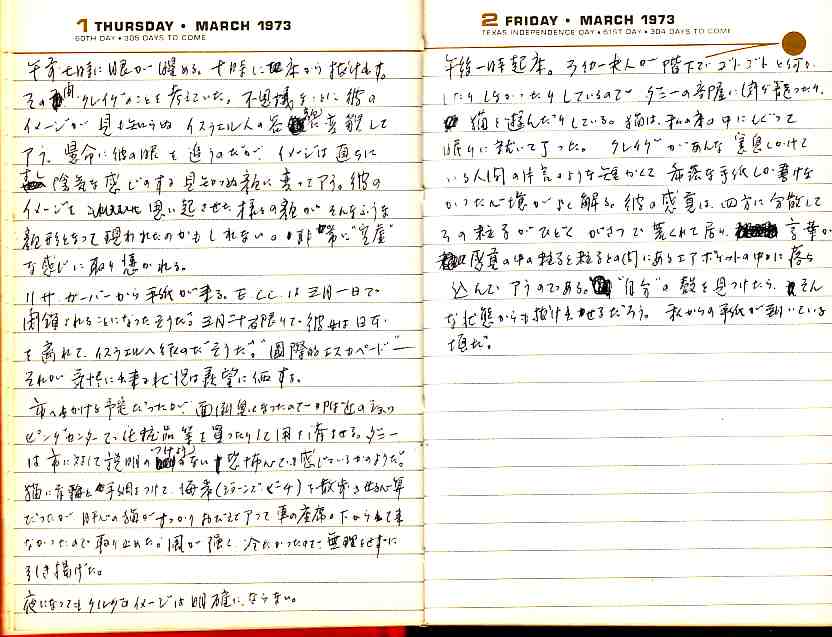 1 THURSDAY • MARCH 1973
60TH DAY • 305 DAYS TO COME
午前七時に眼が醒める。十時に床から抜け出す。
その間 クレイグのことを考えていた。不思議なことに彼の
イメージが見も知らぬイスラエル人の容貌に変貌して
アう。懸命に彼の眼を追うのだが、イメージは直ちに
陰気な感じのする見知らぬ顔に変ってアう。彼の
イメージを 思い起させた様々の顔が そんなふうな
顔形となって現われたのかもしれない。非常に"空虚"
な感じに取り憑かれる。
リサ・ガーバーから手紙が来る。E.C.C. は三月一日で
閉鎖されることになったそうだ。三月二十 限りで彼女は日本
を離れて、イスラエルへ行くのだそうだ。"国際的エスカペード"—
それが 気軽に出来る状況は羨望に価する。
市へ出かける予定だったが、面倒臭くなったので 近のショッ
ピングセンターで、化粧品等を買ったりして用を済ませる。ダニー
は市に対して説明のつけようない恐怖心を感じているかのようだ。
猫に首輪と手綱をつけて、海岸(ジョーンズ・ビーチ)を散歩させる心算
だったが 肝心の猫がすっかりおびえてアって車の座席の下から出て来
なかったので取り止めた。風が強く、冷たかったので無理をせずに
引き揚げた。
夜になってもクレイグのイメージは明確にならない。
2 FRIDAY • MARCH 1973
TEXAS INDEPENDENCE DAY • 61ST DAY • 304 DAYS TO COME
午後一時起床。 夫人が階下でゴトゴトと何か
したりしなかったりしているので ダニーの部屋に閉じ籠ったり、
猫と遊んだりしている。猫は、私の床の中にもぐって
眠りに就いて了った。 クレイグがあんな 窒息しかけて
いる人間の 言のような 短かくて 奇怪な手紙しか書けな
かった心境がよく解る。彼の感覚は、四方に分散して
その粒子がひどくがさつで荒くれて居り、 言葉が
感覚の中の粒子と粒子との間にあるエアポケットの中に落ち
込んで アうのである。"自分"の殻を見つけたら、そん
な状態からも抜け出せるだろう。 私からの手紙が到いている
頃だ。